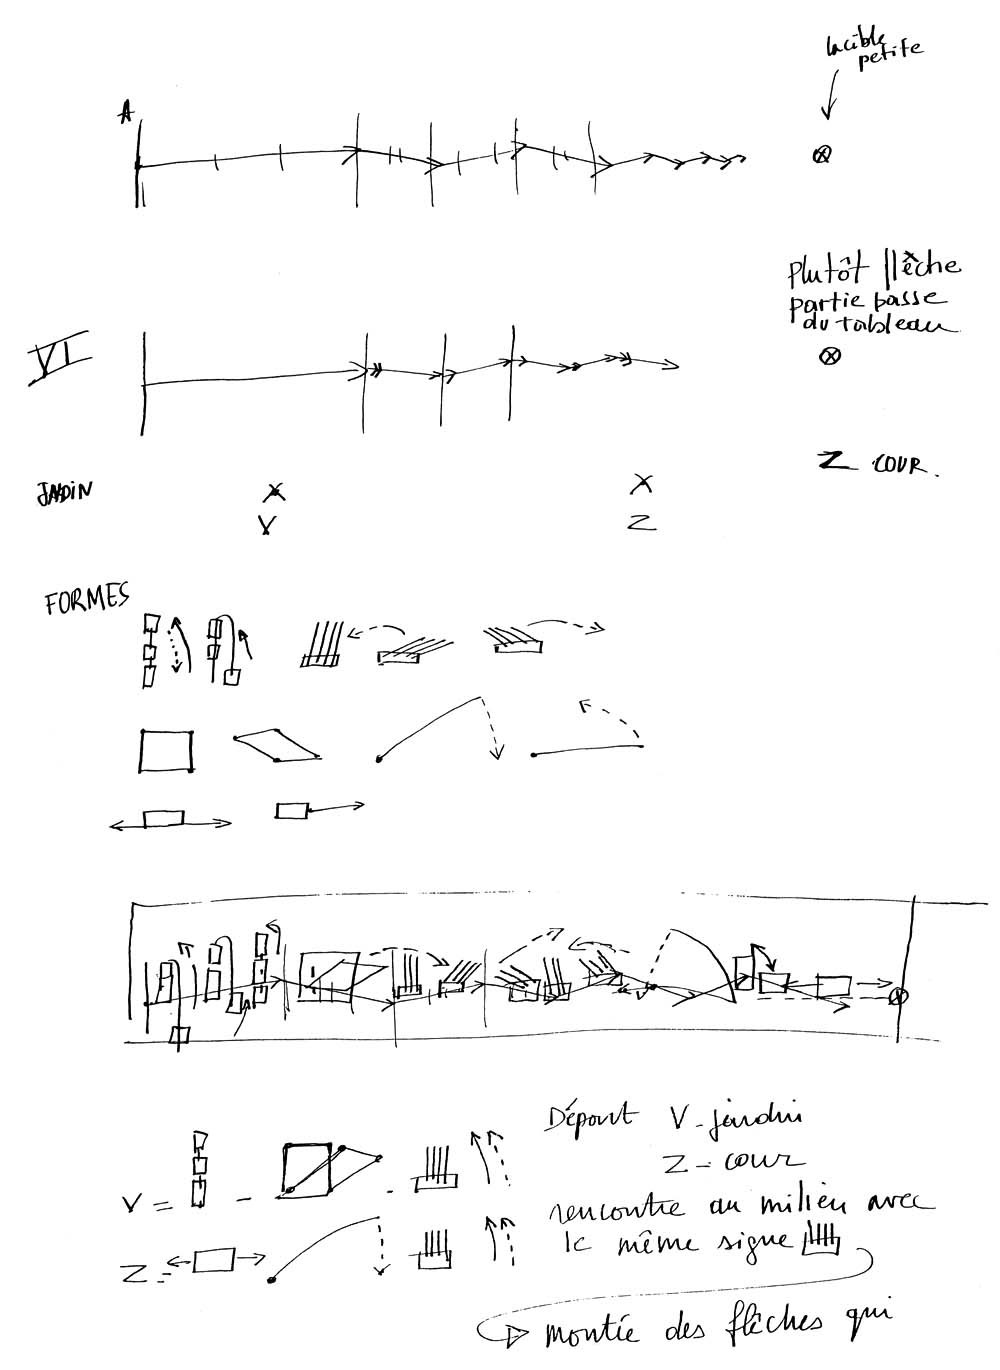 la cible
petite
A
Plutôt flèche
partie basse
du tableau
VI
Z COUR.
JARDIN
X X
V Z
FORMES
Départ V - jardin
Z - cour
V =
rencontre au milieu avec
le même signe
Z =
montée des flèches qui